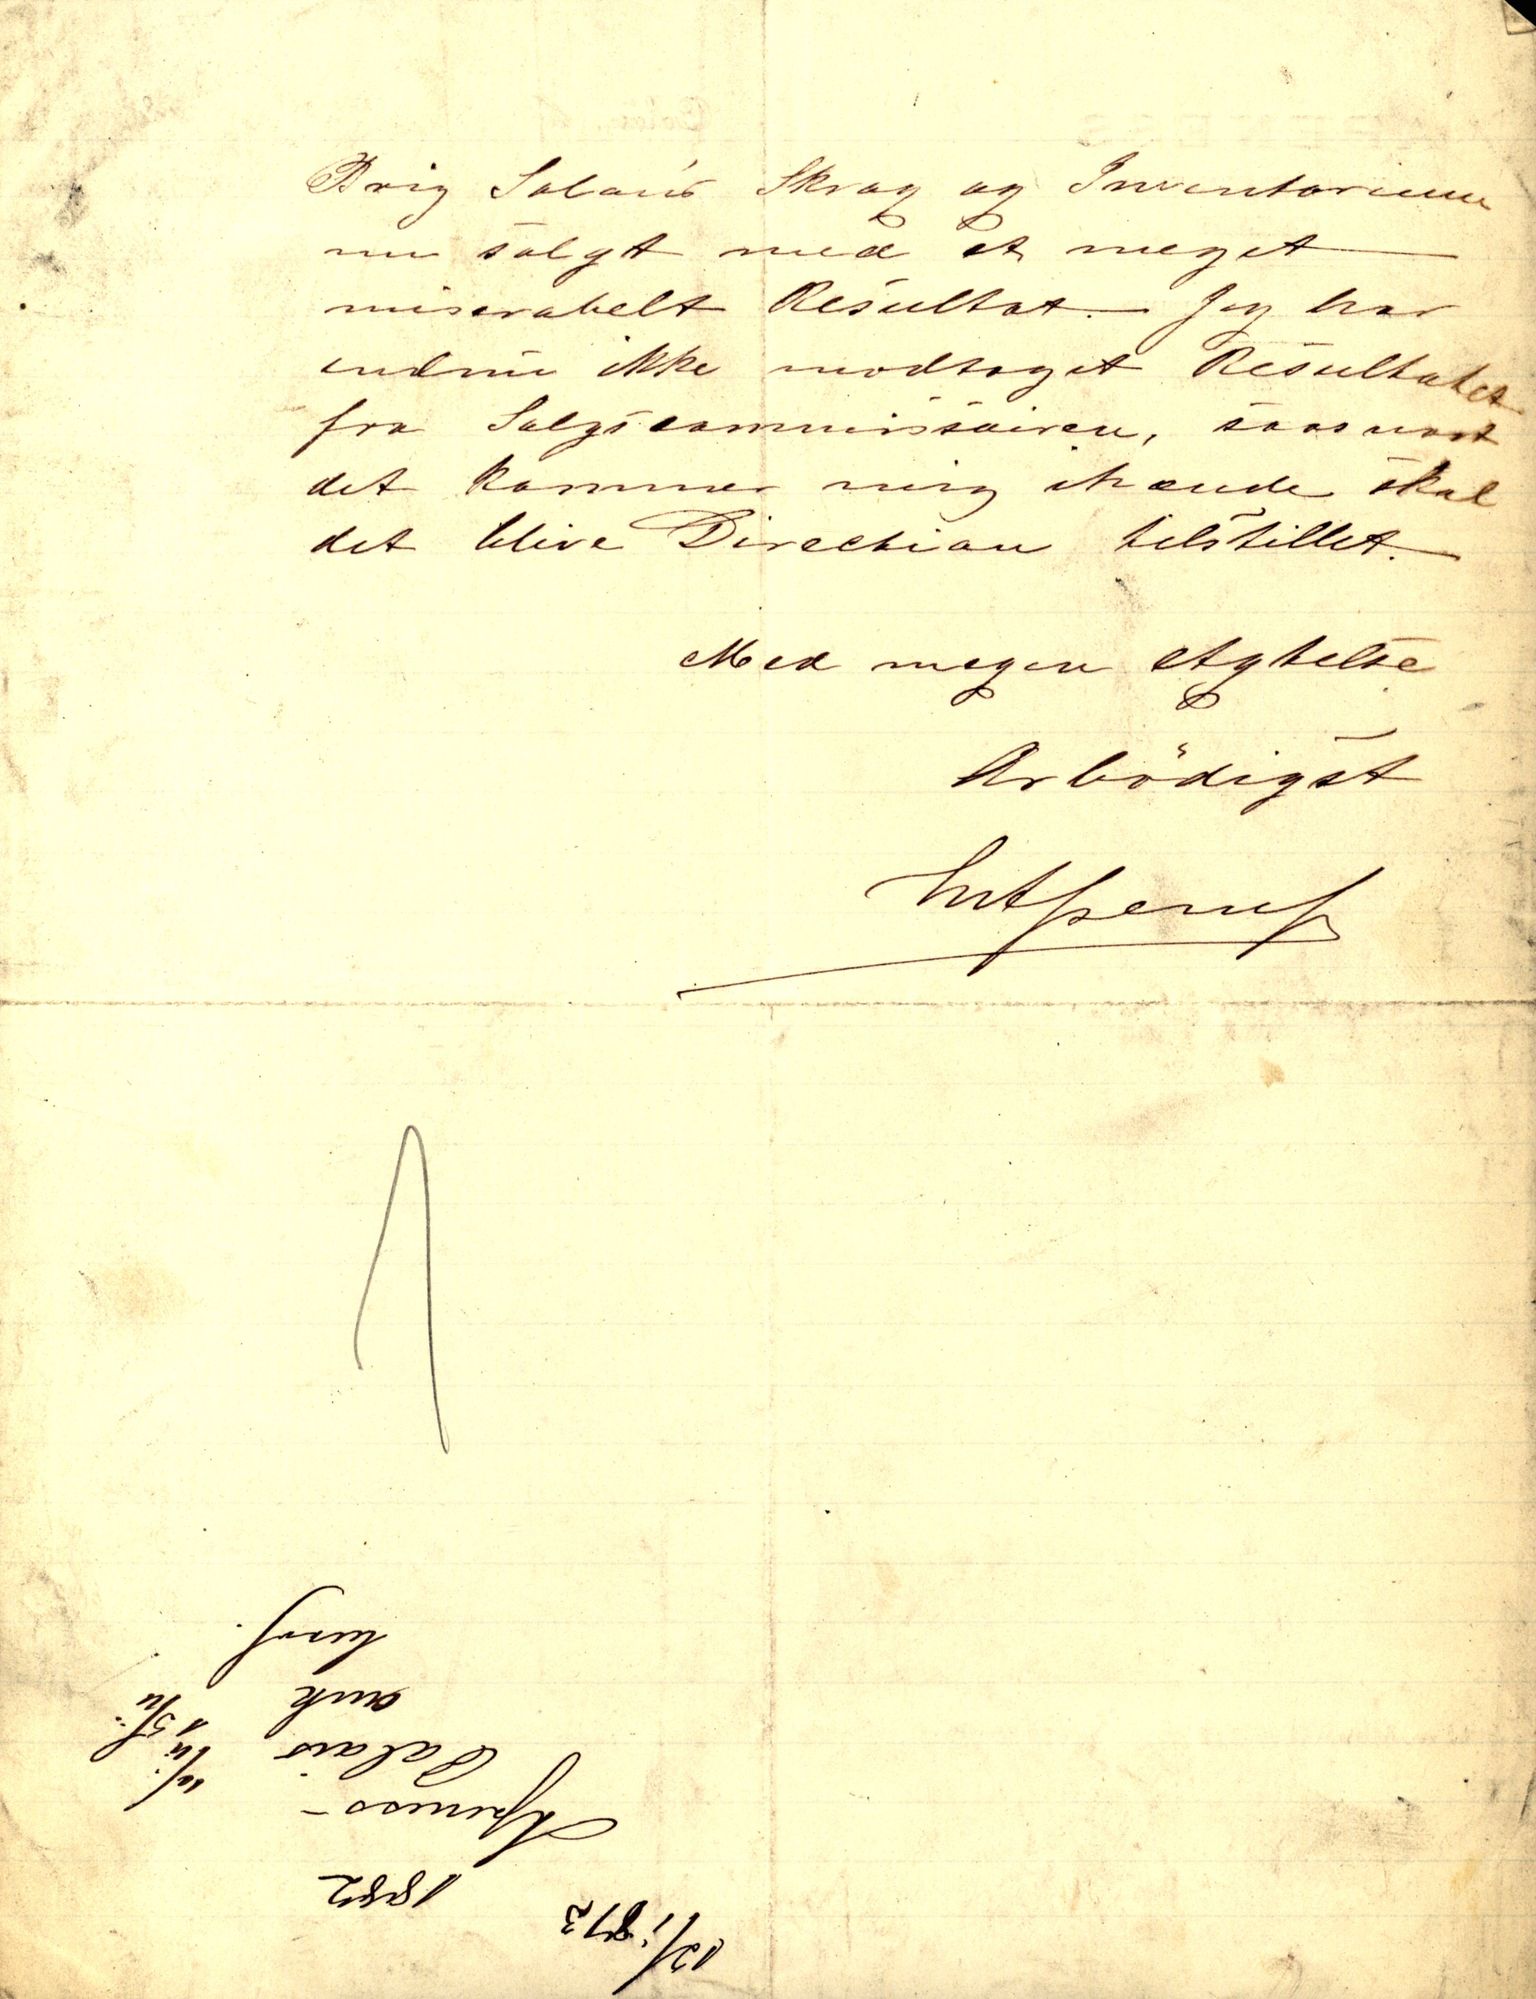 Brig Salaís Skrog og Inventorium
nu solgt med et meget
miserabelt Resultat. Jeg har
endnu ikke modtaget Resultatet
fra Salgscommissairen, saasnart
det kommer mig ihænde skal
det blive Direction tilstillet.
Med megen Agtelse
Arbödigst
1882
Salais